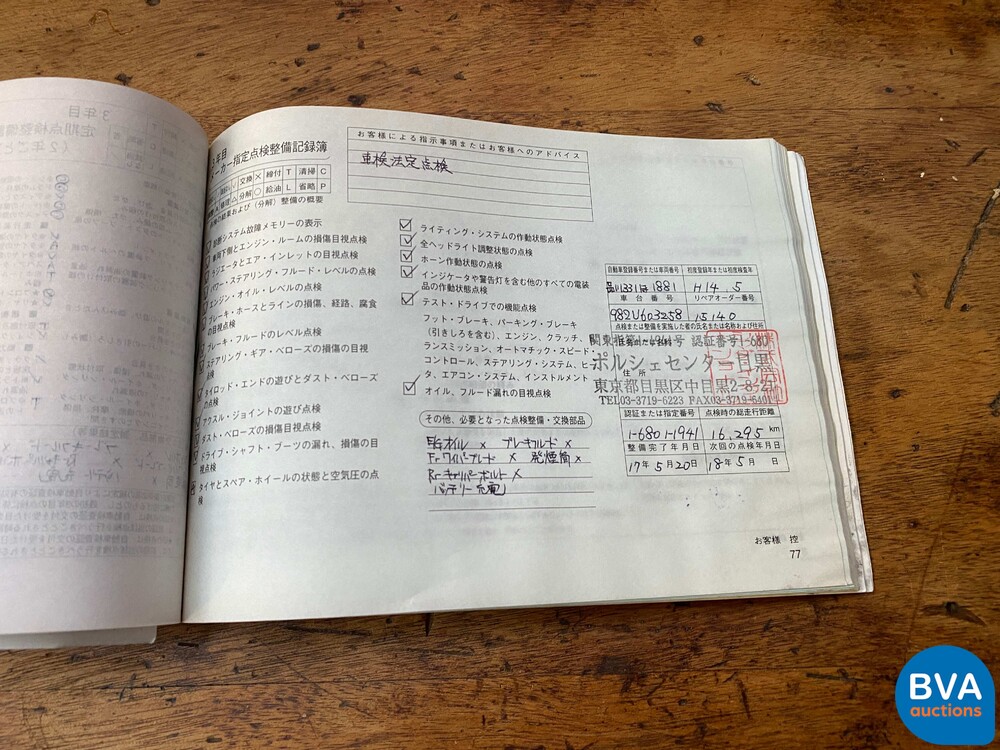 3年目
定期点検整備
(2年ごと
3年目
メーカー指定点検整備記録簿
交換 × 締付 T 清掃 C
分解 ○ 給油 L 省略 P
結果および(分解)整備の概要
お客様による指示事項またはお客様へのアドバイス
車検法定点検
システム故障メモリーの表示
車両下側とエンジン・ルームの損傷目視点検
ラジエータとエア・インレットの目視点検
パワー・ステアリング・フルード・レベルの点検
エンジン・オイル・レベルの点検
ブレーキ・ホースとラインの損傷、経路、腐食
の目視点検
ブレーキ・フルードのレベル点検
ステアリング・ギア・ベローズの損傷の目視
点検
タイロッド・エンドの遊びとダスト・ベローズ
の点検
アクスル・ジョイントの遊び点検
ダスト・ベローズの損傷目視点検
ドライブ・シャフト・ブーツの漏れ、損傷の目
視点検
タイヤとスペア・ホイールの状態と空気圧の点
検
ライティング・システムの作動状態点検
全ヘッドライト調整状態の点検
ホーン作動状態の点検
インジケータや警告灯を含む他のすべての電装
品の作動状態点検
テスト・ドライブでの機能点検
フット・ブレーキ、パーキング・ブレーキ
(引きしろを含む)、エンジン、クラッチ、
ランスミッション、オートマチック・スピード・
コントロール、ステアリング・システム、ヒ
タ、エアコン・システム、インストルメント
オイル、フルード漏れの目視点検
その他、必要となった点検整備・交換部品
E/gオイル × ブレーキフルード ×
Frワイパーブレード × 発煙筒 ×
Rrキャリパーボルト ×
バッテリー充電
自動車登録番号または車両番号 初度登録年または初度検査年
品川331 1881 H14 5
車台番号 リペアオーダー番号
982U603258 15140
点検または整備を実施した者の氏名または名称および住所
関東指第1-1941号 認証番号1-680
ポルシェセンター目黒
住所
東京都目黒区中目黒2-8-21
TEL03-3719-6223 FAX03-3719-6401
認証または指定番号 点検時の総走行距離
1-680 1-1941 16,295 km
整備完了年月日 次回の点検年月日
17年 5月 20日 18年 5月 日
お客様 控
77
BVA
auctions